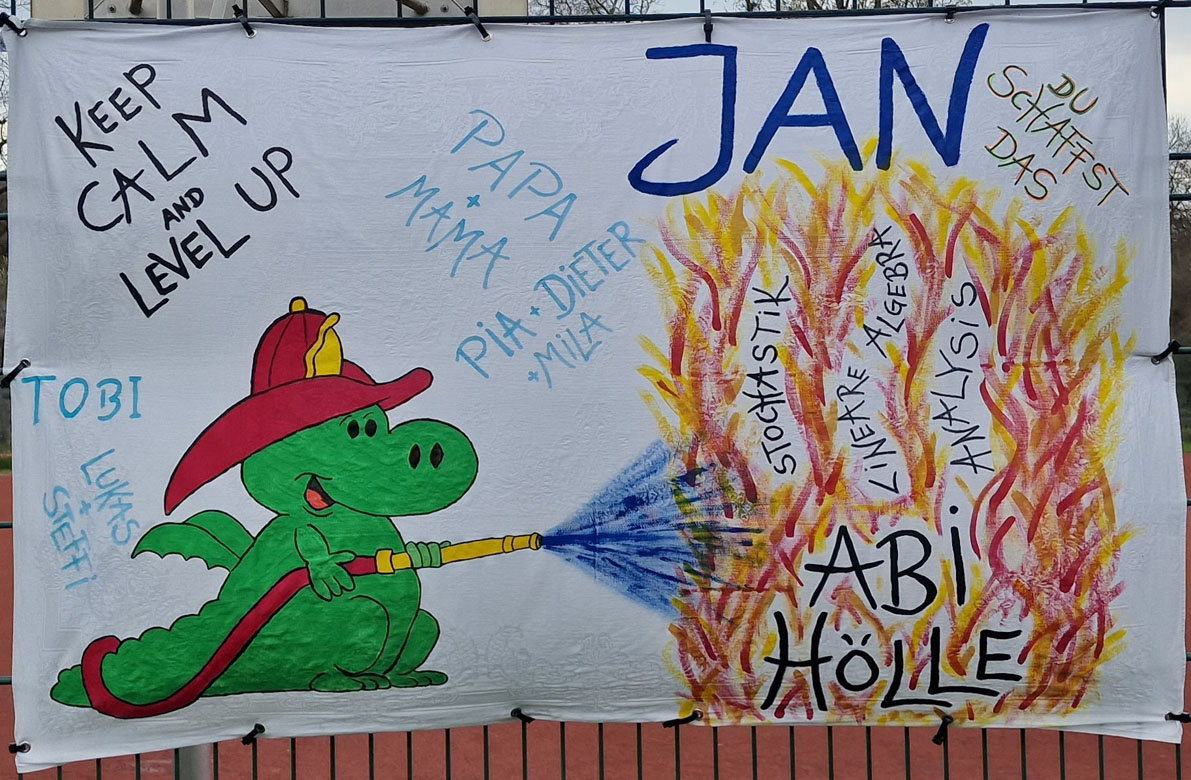 KEEP
CALM
AND
LEVEL UP
PAPA
+
MAMA
PIA + DIETER
+ MILA
JAN
DU
SCHAFFST
DAS
TOBI
LUKAS
+
STEFFI
STOCHASTIK
LINEARE ALGEBRA
ANALYSIS
ABI
HÖLLE